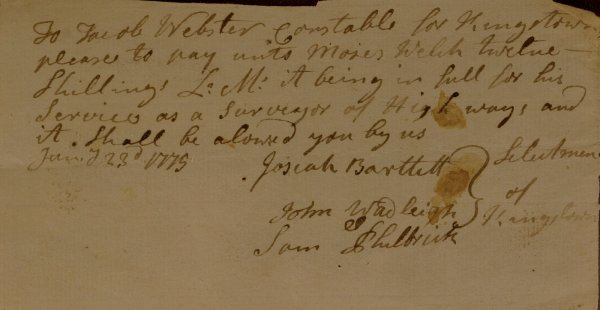 To Jacob Webster Constable for Kingstown
please to pay unto Moses Welch twelve
Shillings L. M. it being in full for his
Services as a Surveyor of High ways and
it Shall be alowed you by us
Jany 23d 1775
Josiah Bartlett
John Wadleigh
Sam Philbrick
Selectmen
of
Kingstown